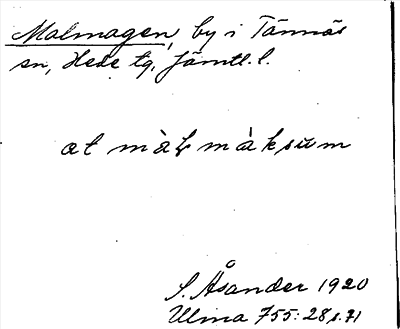 Malmagen, by i Tännäs
sn, Hede tg, Jämtl. l.
at màlmàksum
S. Åsander 1920
Ulma 755:28 s. 71